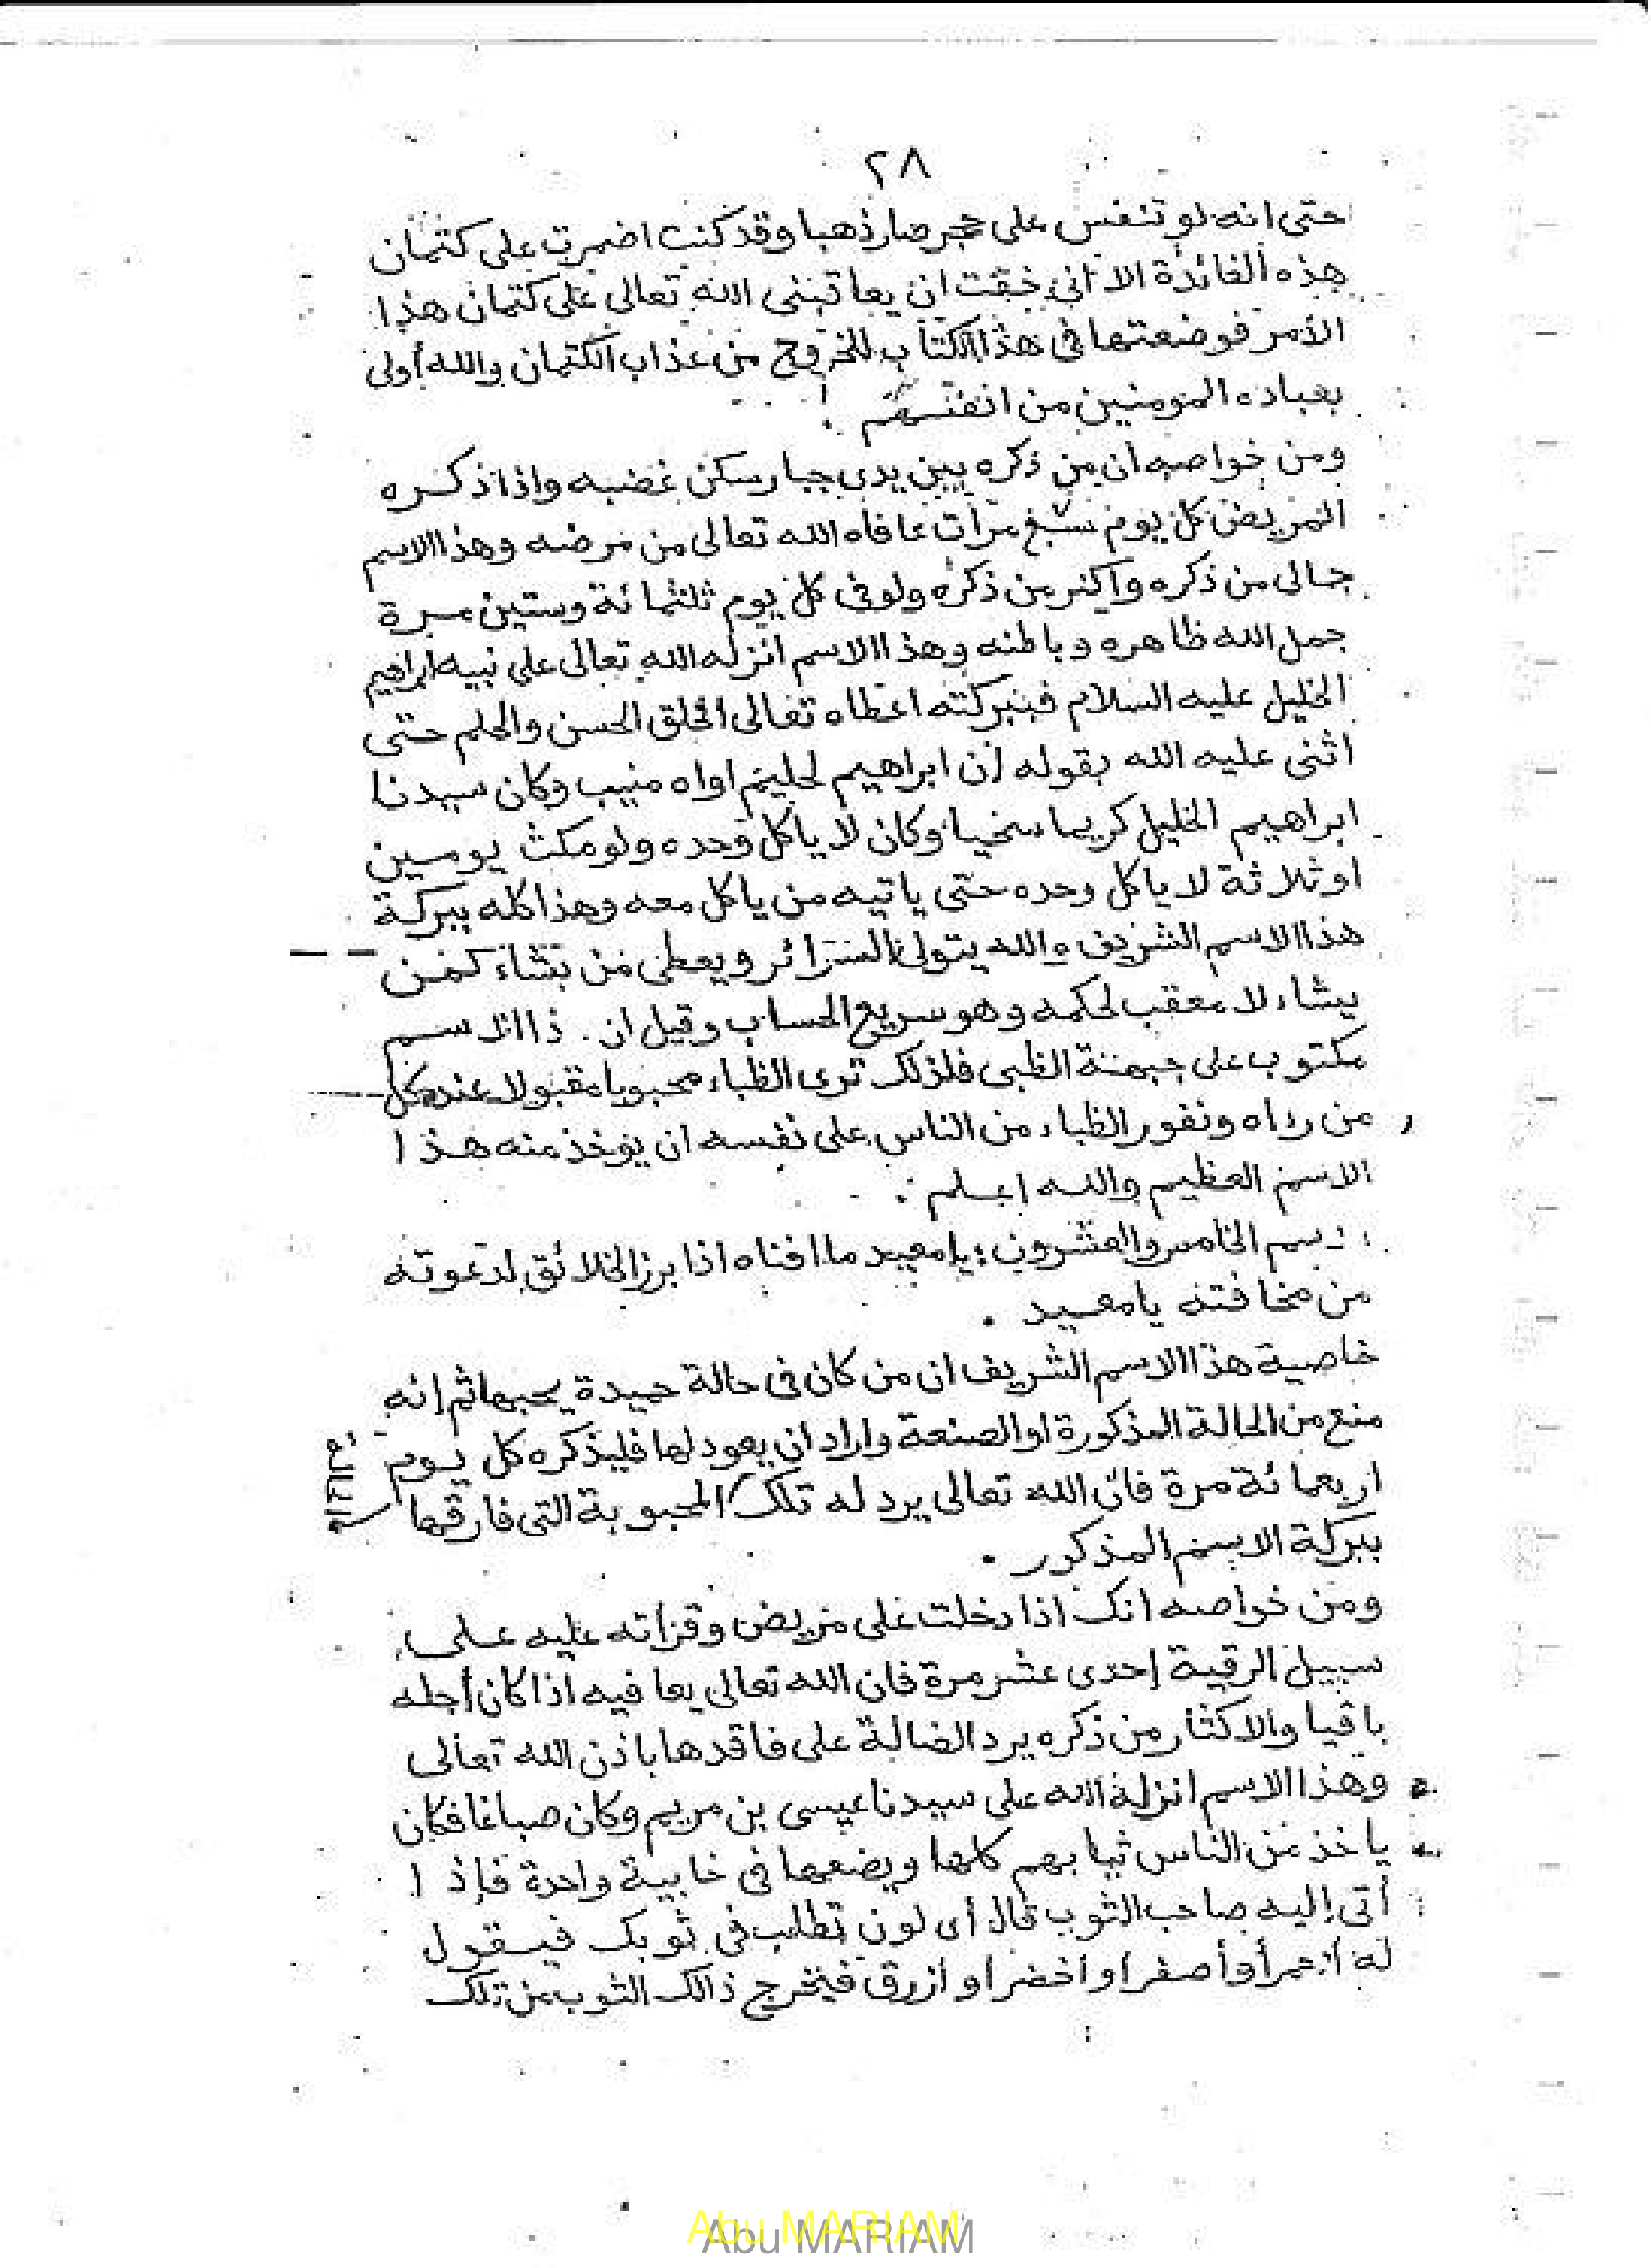 ٢٨
حتى انه لو تنفس على حجر صار ذهبا وقد كنت اضمرت على كتمان
هذه الفائدة الا اني خفت ان يعاتبني الله تعالى على كتمان هذا
الأمر فوضعتها في هذا الكتاب للخروج من عذاب الكتمان والله أولى
بعباده المومنين من انفسهم .
ومن خواصه ان من ذكره بين يدى جبار سكن غضبه واذا ذكره
المريض كل يوم سبع مرات عافاه الله تعالى من مرضه وهذا الاسم
جمالى من ذكره واكثر من ذكره ولو فى كل يوم ثلثمائة وستين مرة
جمل الله ظاهره وباطنه وهذا الاسم انزله الله تعالى على نبيه ابراهيم
الخليل عليه السلام فببركته اعطاه تعالى الخلق الحسن والحلم حتى
اثنى عليه الله بقوله إن ابراهيم لحليم اواه منيب وكان سيدنا
ابراهيم الخليل كريما سخيا وكان لا ياكل وحده ولو مكث يومين
او ثلاثة لا ياكل وحده حتى ياتيه من ياكل معه وهذا كله ببركة
هذا الاسم الشريف والله يتولى السرائر ويعطى من يشاء كمن
يشاء لا معقب لحكمه وهو سريع الحساب وقيل ان ذا الاسم
مكتوب على جبهة الظبى فلذلك ترى الظباء محبوبا مقبولا عند كل
من رداه ونفور الظباء من الناس على نفسه ان يوخذ منه هذا
الاسم العظيم والله اعلم .
سم الخامس والعشرون : يا معيد ما افناه اذا برز الخلائق لدعوته
من مخافته يا معيد .
خاصية هذا الاسم الشريف ان من كان فى حالة حميدة يحبها ثم إنه
منع من الحالة المذكورة او الصنعة واراد ان يعود لها فليذكره كل يوم
اربعمائة مرة فان الله تعالى يرد له تلك المحبوبة التى فارقها
ببركة الاسم المذكور .
ومن خواصه انك اذا دخلت على مريض وقراته عليه على
سبيل الرقية إحدى عشر مرة فان الله تعالى يعافيه اذا كان أجله
باقيا والاكثار من ذكره يرد الضالة على فاقدها باذن الله تعالى
وهذا الاسم انزله الله على سيدنا عيسى بن مريم وكان صباغا فكان
ياخذ من الناس ثيابهم كلها ويضعها فى خابية واحدة فإذا
أتى إليه صاحب الثوب قال أى لون تطلب فى ثوبك فيقول
له أحمر أو أصفر او اخضر او ازرق فيخرج ذالك الثوب من تلك
Abu MARIAM